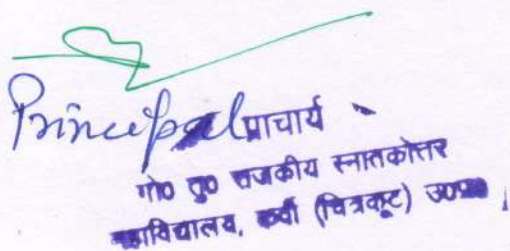 Principal प्राचार्य
गो० तु० राजकीय स्नातकोत्तर
महाविद्यालय, कर्वी (चित्रकूट) उ०प्र०